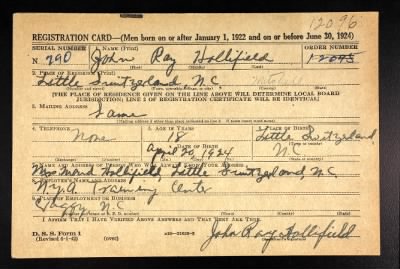 12096
REGISTRATION CARD—(Men born on or after January 1, 1922 and on or before June 30, 1924)
SERIAL NUMBER 1. NAME (Print) ORDER NUMBER
N 240 John Ray Hollifield 12095
2. PLACE OF RESIDENCE (Print)
Little Switzerland, N.C. Mitchell
[THE PLACE OF RESIDENCE GIVEN ON THE LINE ABOVE WILL DETERMINE LOCAL BOARD
JURISDICTION; LINE 2 OF REGISTRATION CERTIFICATE WILL BE IDENTICAL]
3. MAILING ADDRESS
Same
[Mailing address if other than place indicated on line 2. If same insert word same]
4. TELEPHONE 5. AGE IN YEARS 6. PLACE OF BIRTH
None 18 Little Switzerland
DATE OF BIRTH
April 20 1924 N.C.
7. NAME AND ADDRESS OF PERSON WHO WILL ALWAYS KNOW YOUR ADDRESS
Hollifield Little Switzerland, N.C.
8. EMPLOYER'S NAME AND ADDRESS
N.Y.A. Training Center
9. PLACE OF EMPLOYMENT OR BUSINESS
N.C.
I AFFIRM THAT I HAVE VERIFIED ABOVE ANSWERS AND THAT THEY ARE TRUE.
D. S. S. Form 1
(Revised 6-1-42) (over) John Ray Hollifield